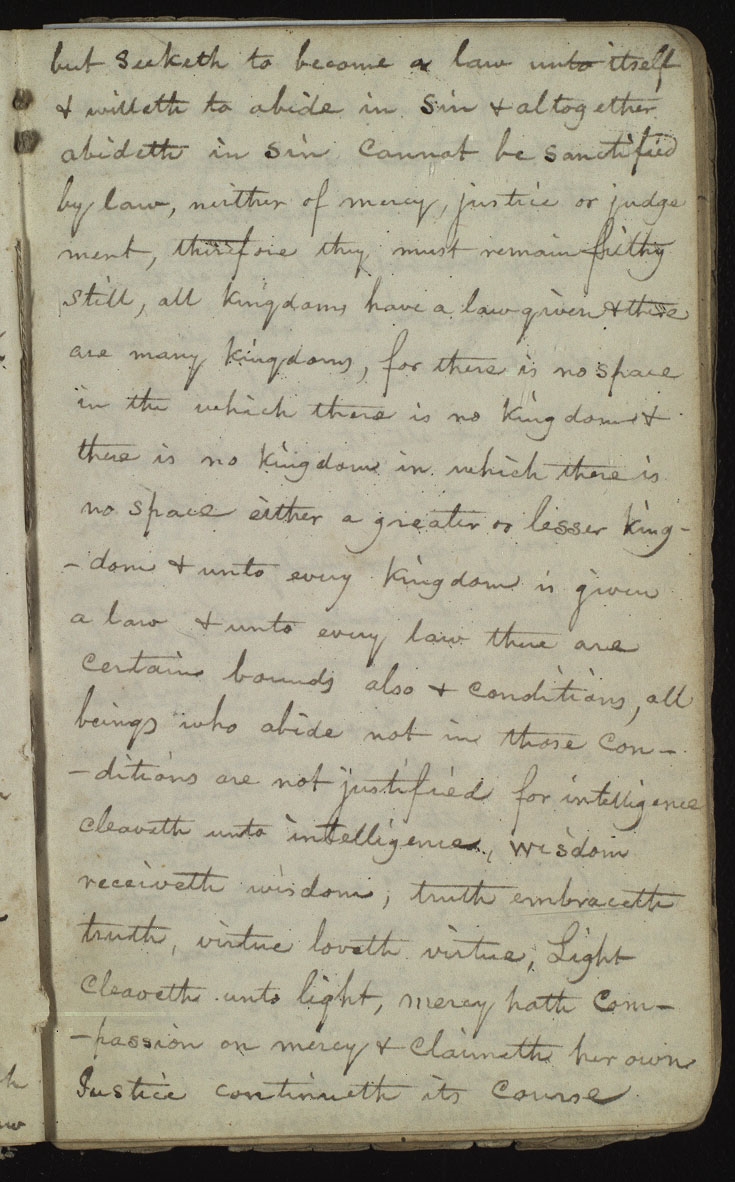 but seeketh to become a law unto itself
& willeth to abide in Sin & altogether
abideth in Sin Cannot be Sanctified
by law, neither of mercy, justice or judge
ment, therefore they must remain filthy
Still, all Kingdoms have a law given & there
are many Kingdoms, for there is no space
in the which there is no Kingdom &
there is no Kingdom in which there is
no space either a greater or lesser King-
-dom & unto every Kingdom is given
a law & unto every law there are
Certain bounds also & Conditions, all
beings who abide not in those Con-
-ditions are not justified for intelligence
Cleaveth unto intelligence, wisdom
receiveth wisdom, truth embraceth
truth, virtue loveth virtue, Light
Cleaveth unto light, mercy hath Com-
-passion on mercy & Claimeth her own
Justice continueth its Course